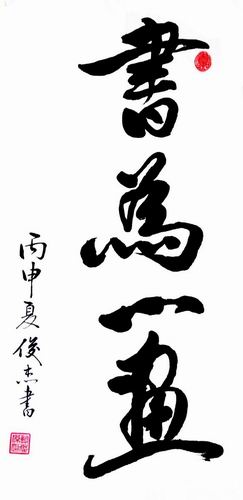 書為心畫
丙申夏俊杰書